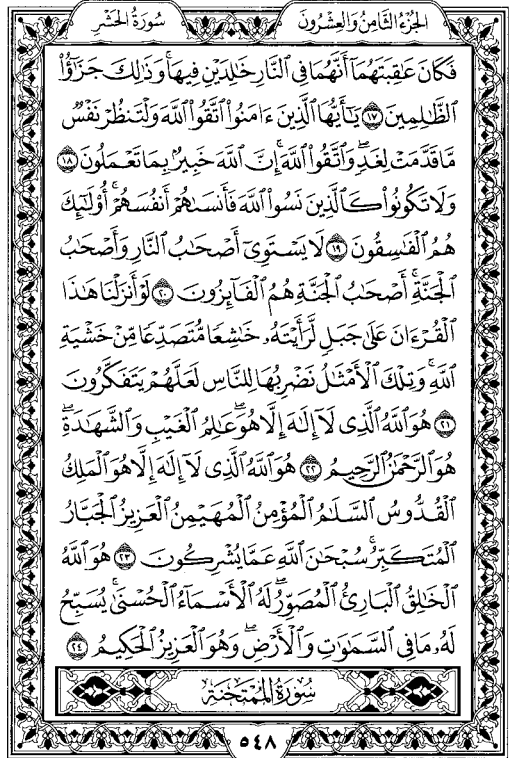 سُورَةُ الحَشْرِ
الجُزْءُ الثَّامِنُ وَالعِشْرُونَ
فَكَانَ عَٰقِبَتَهُمَآ أَنَّهُمَا فِى ٱلنَّارِ خَٰلِدَيْنِ فِيهَا ۚ وَذَٰلِكَ جَزَٰٓؤُا۟
ٱلظَّٰلِمِينَ ١٧ يَٰٓأَيُّهَا ٱلَّذِينَ ءَامَنُوا۟ ٱتَّقُوا۟ ٱللَّهَ وَلْتَنظُرْ نَفْسٌ
مَّا قَدَّمَتْ لِغَدٍ ۖ وَٱتَّقُوا۟ ٱللَّهَ ۚ إِنَّ ٱللَّهَ خَبِيرٌۢ بِمَا تَعْمَلُونَ ١٨
وَلَا تَكُونُوا۟ كَٱلَّذِينَ نَسُوا۟ ٱللَّهَ فَأَنسَىٰهُمْ أَنفُسَهُمْ ۚ أُو۟لَٰٓئِكَ
هُمُ ٱلْفَٰسِقُونَ ١٩ لَا يَسْتَوِىٓ أَصْحَٰبُ ٱلنَّارِ وَأَصْحَٰبُ
ٱلْجَنَّةِ ۚ أَصْحَٰبُ ٱلْجَنَّةِ هُمُ ٱلْفَآئِزُونَ ٢٠ لَوْ أَنزَلْنَا هَٰذَا
ٱلْقُرْءَانَ عَلَىٰ جَبَلٍ لَّرَأَيْتَهُۥ خَٰشِعًا مُّتَصَدِّعًا مِّنْ خَشْيَةِ
ٱللَّهِ ۚ وَتِلْكَ ٱلْأَمْثَٰلُ نَضْرِبُهَا لِلنَّاسِ لَعَلَّهُمْ يَتَفَكَّرُونَ
٢١ هُوَ ٱللَّهُ ٱلَّذِى لَآ إِلَٰهَ إِلَّا هُوَ ۖ عَٰلِمُ ٱلْغَيْبِ وَٱلشَّهَٰدَةِ ۖ
هُوَ ٱلرَّحْمَٰنُ ٱلرَّحِيمُ ٢٢ هُوَ ٱللَّهُ ٱلَّذِى لَآ إِلَٰهَ إِلَّا هُوَ ٱلْمَلِكُ
ٱلْقُدُّوسُ ٱلسَّلَٰمُ ٱلْمُؤْمِنُ ٱلْمُهَيْمِنُ ٱلْعَزِيزُ ٱلْجَبَّارُ
ٱلْمُتَكَبِّرُ ۚ سُبْحَٰنَ ٱللَّهِ عَمَّا يُشْرِكُونَ ٢٣ هُوَ ٱللَّهُ
ٱلْخَٰلِقُ ٱلْبَارِئُ ٱلْمُصَوِّرُ ۖ لَهُ ٱلْأَسْمَآءُ ٱلْحُسْنَىٰ ۚ يُسَبِّحُ
لَهُۥ مَا فِى ٱلسَّمَٰوَٰتِ وَٱلْأَرْضِ ۖ وَهُوَ ٱلْعَزِيزُ ٱلْحَكِيمُ ٢٤
سُورَةُ المُمْتَحنَةِ
٥٤٨